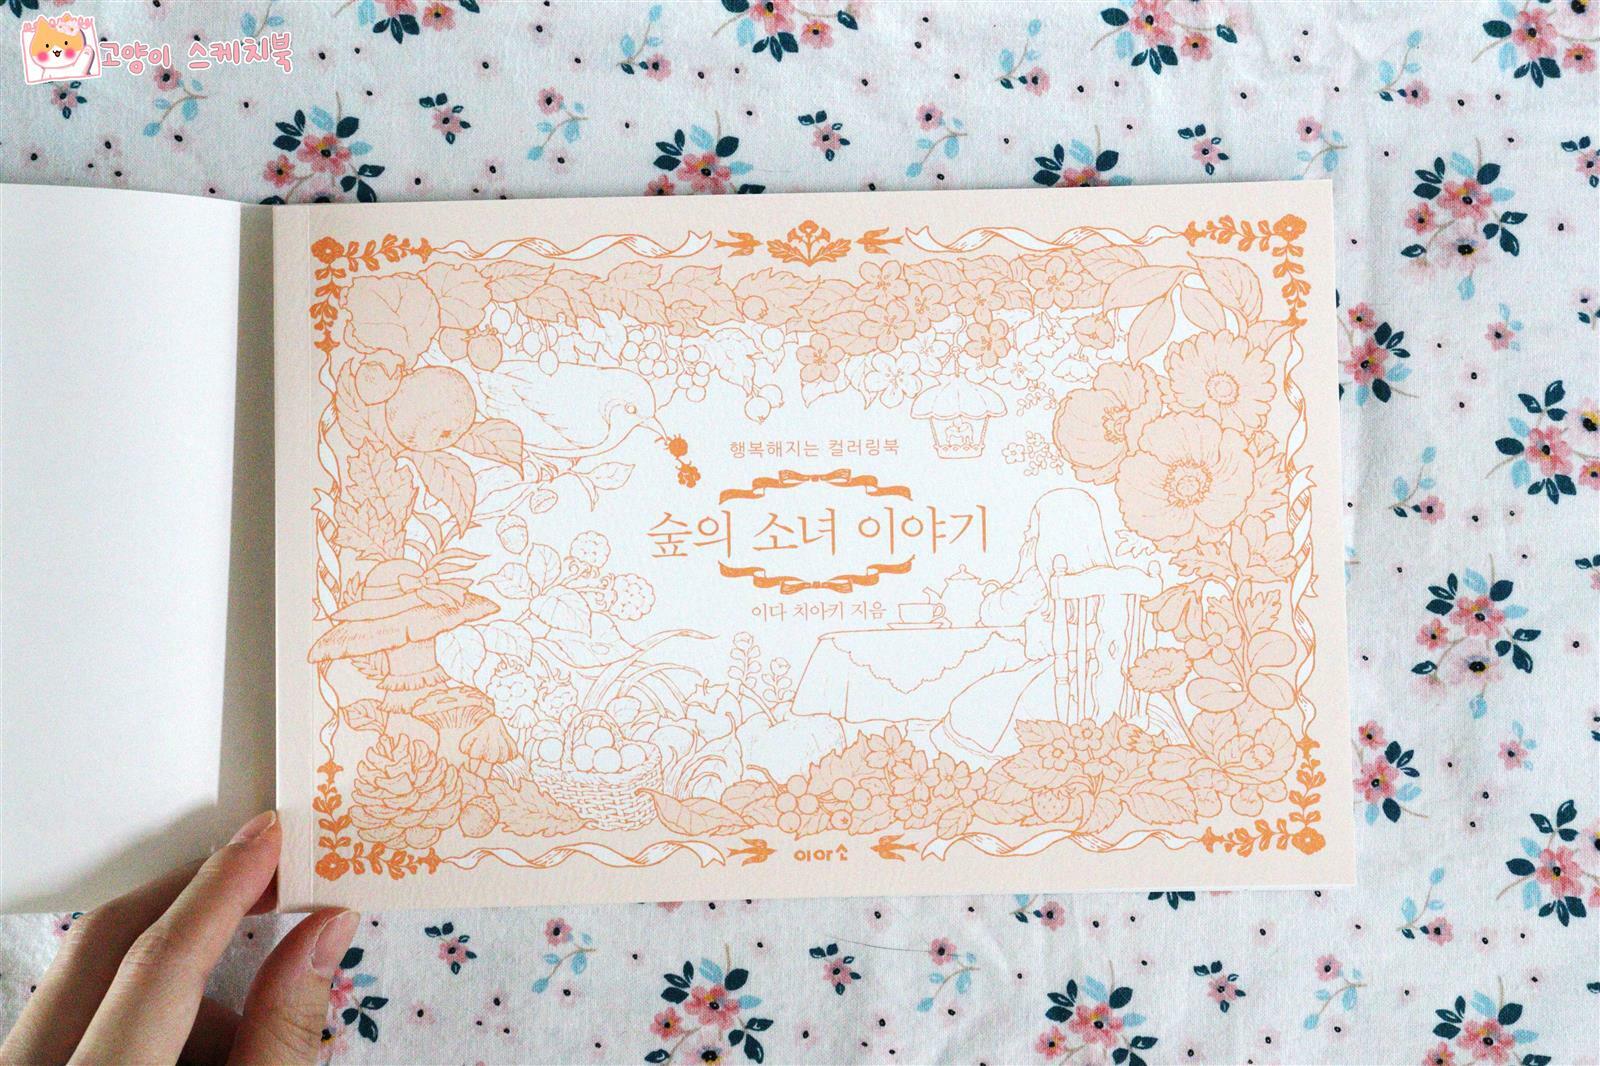 고양이 스케치북
행복해지는 컬러링북
숲의 소녀 이야기
이다 치아키 지음
이아소